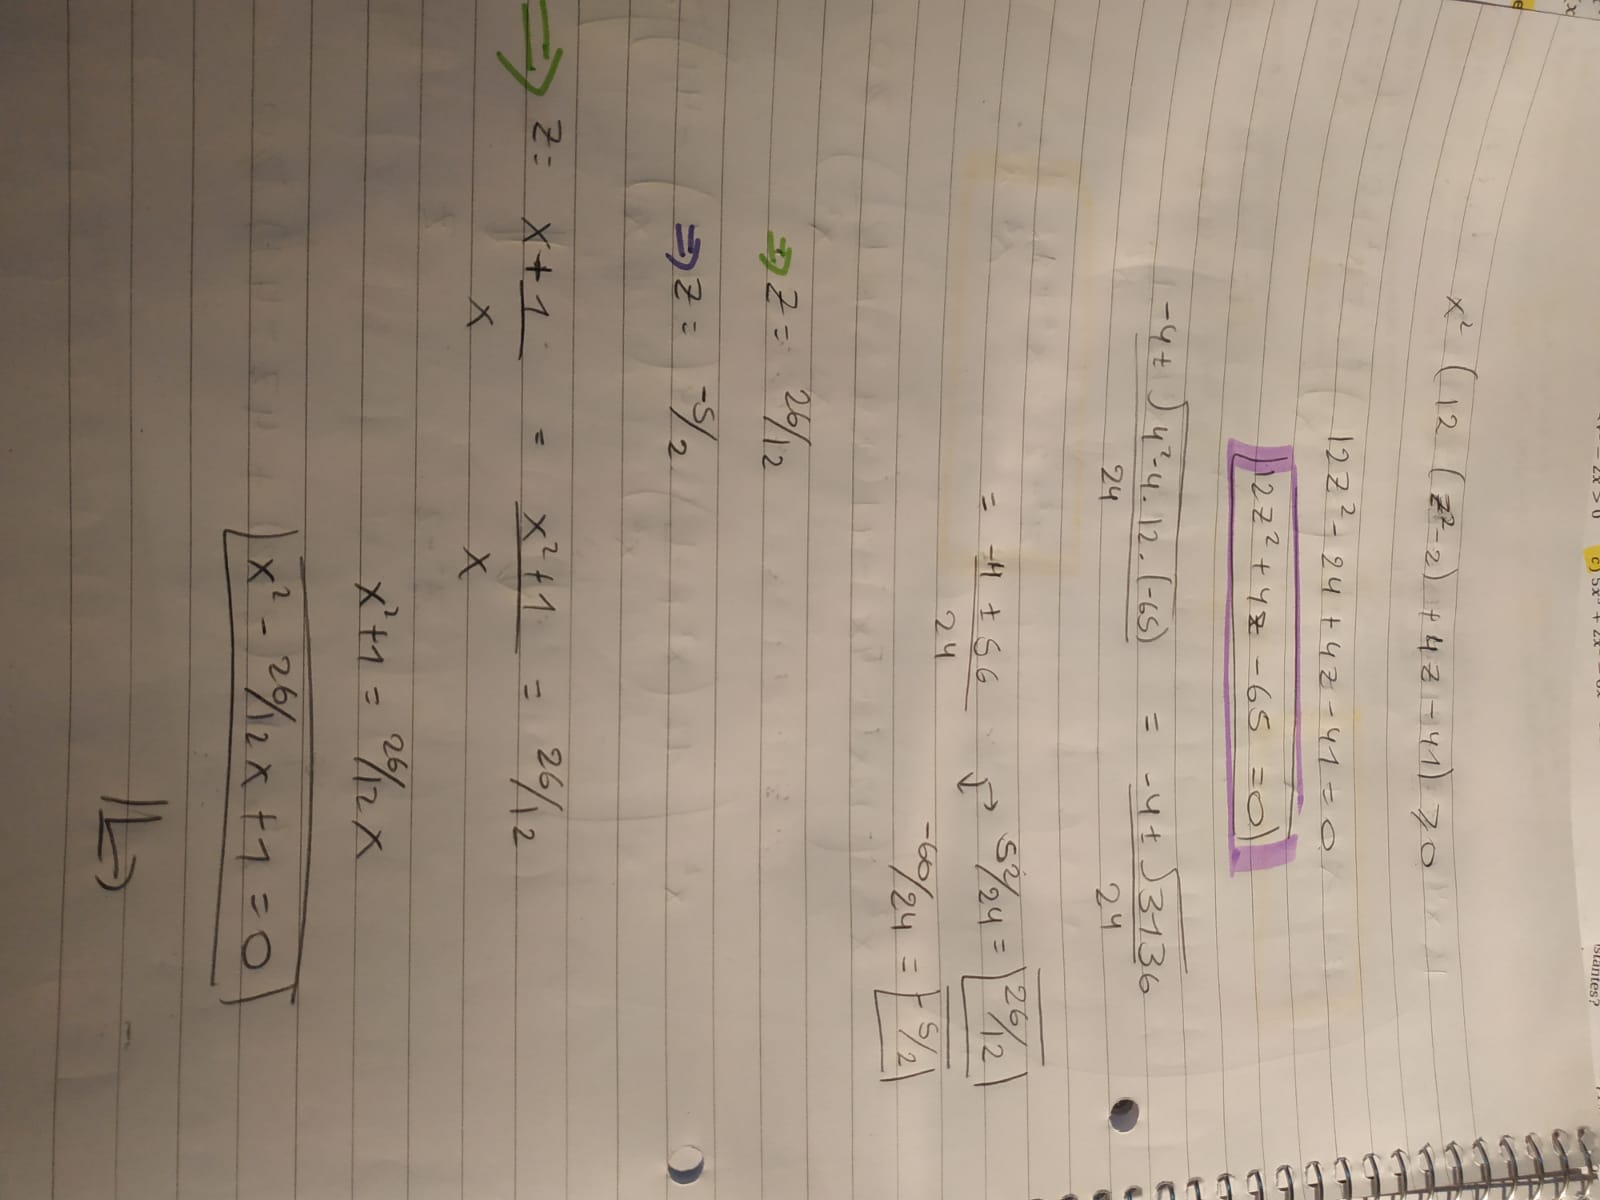 x² (12 (z²-2) + 4z - 41) ≥ 0
12z² - 24 + 4z - 41 = 0
12z² + 4z - 65 = 0
-4 ± √4²-4.12.(-65) / 24 = -4 ± √3136 / 24
= -4 ± 56 / 24 → 52/24 = 26/12
-60/24 = -5/2
⇒ z = 26/12
⇒ z = -5/2
⇒ z = x + 1/x = x²+1 / x = 26/12
x²+1 = 26/12 x
x² - 26/12 x + 1 = 0